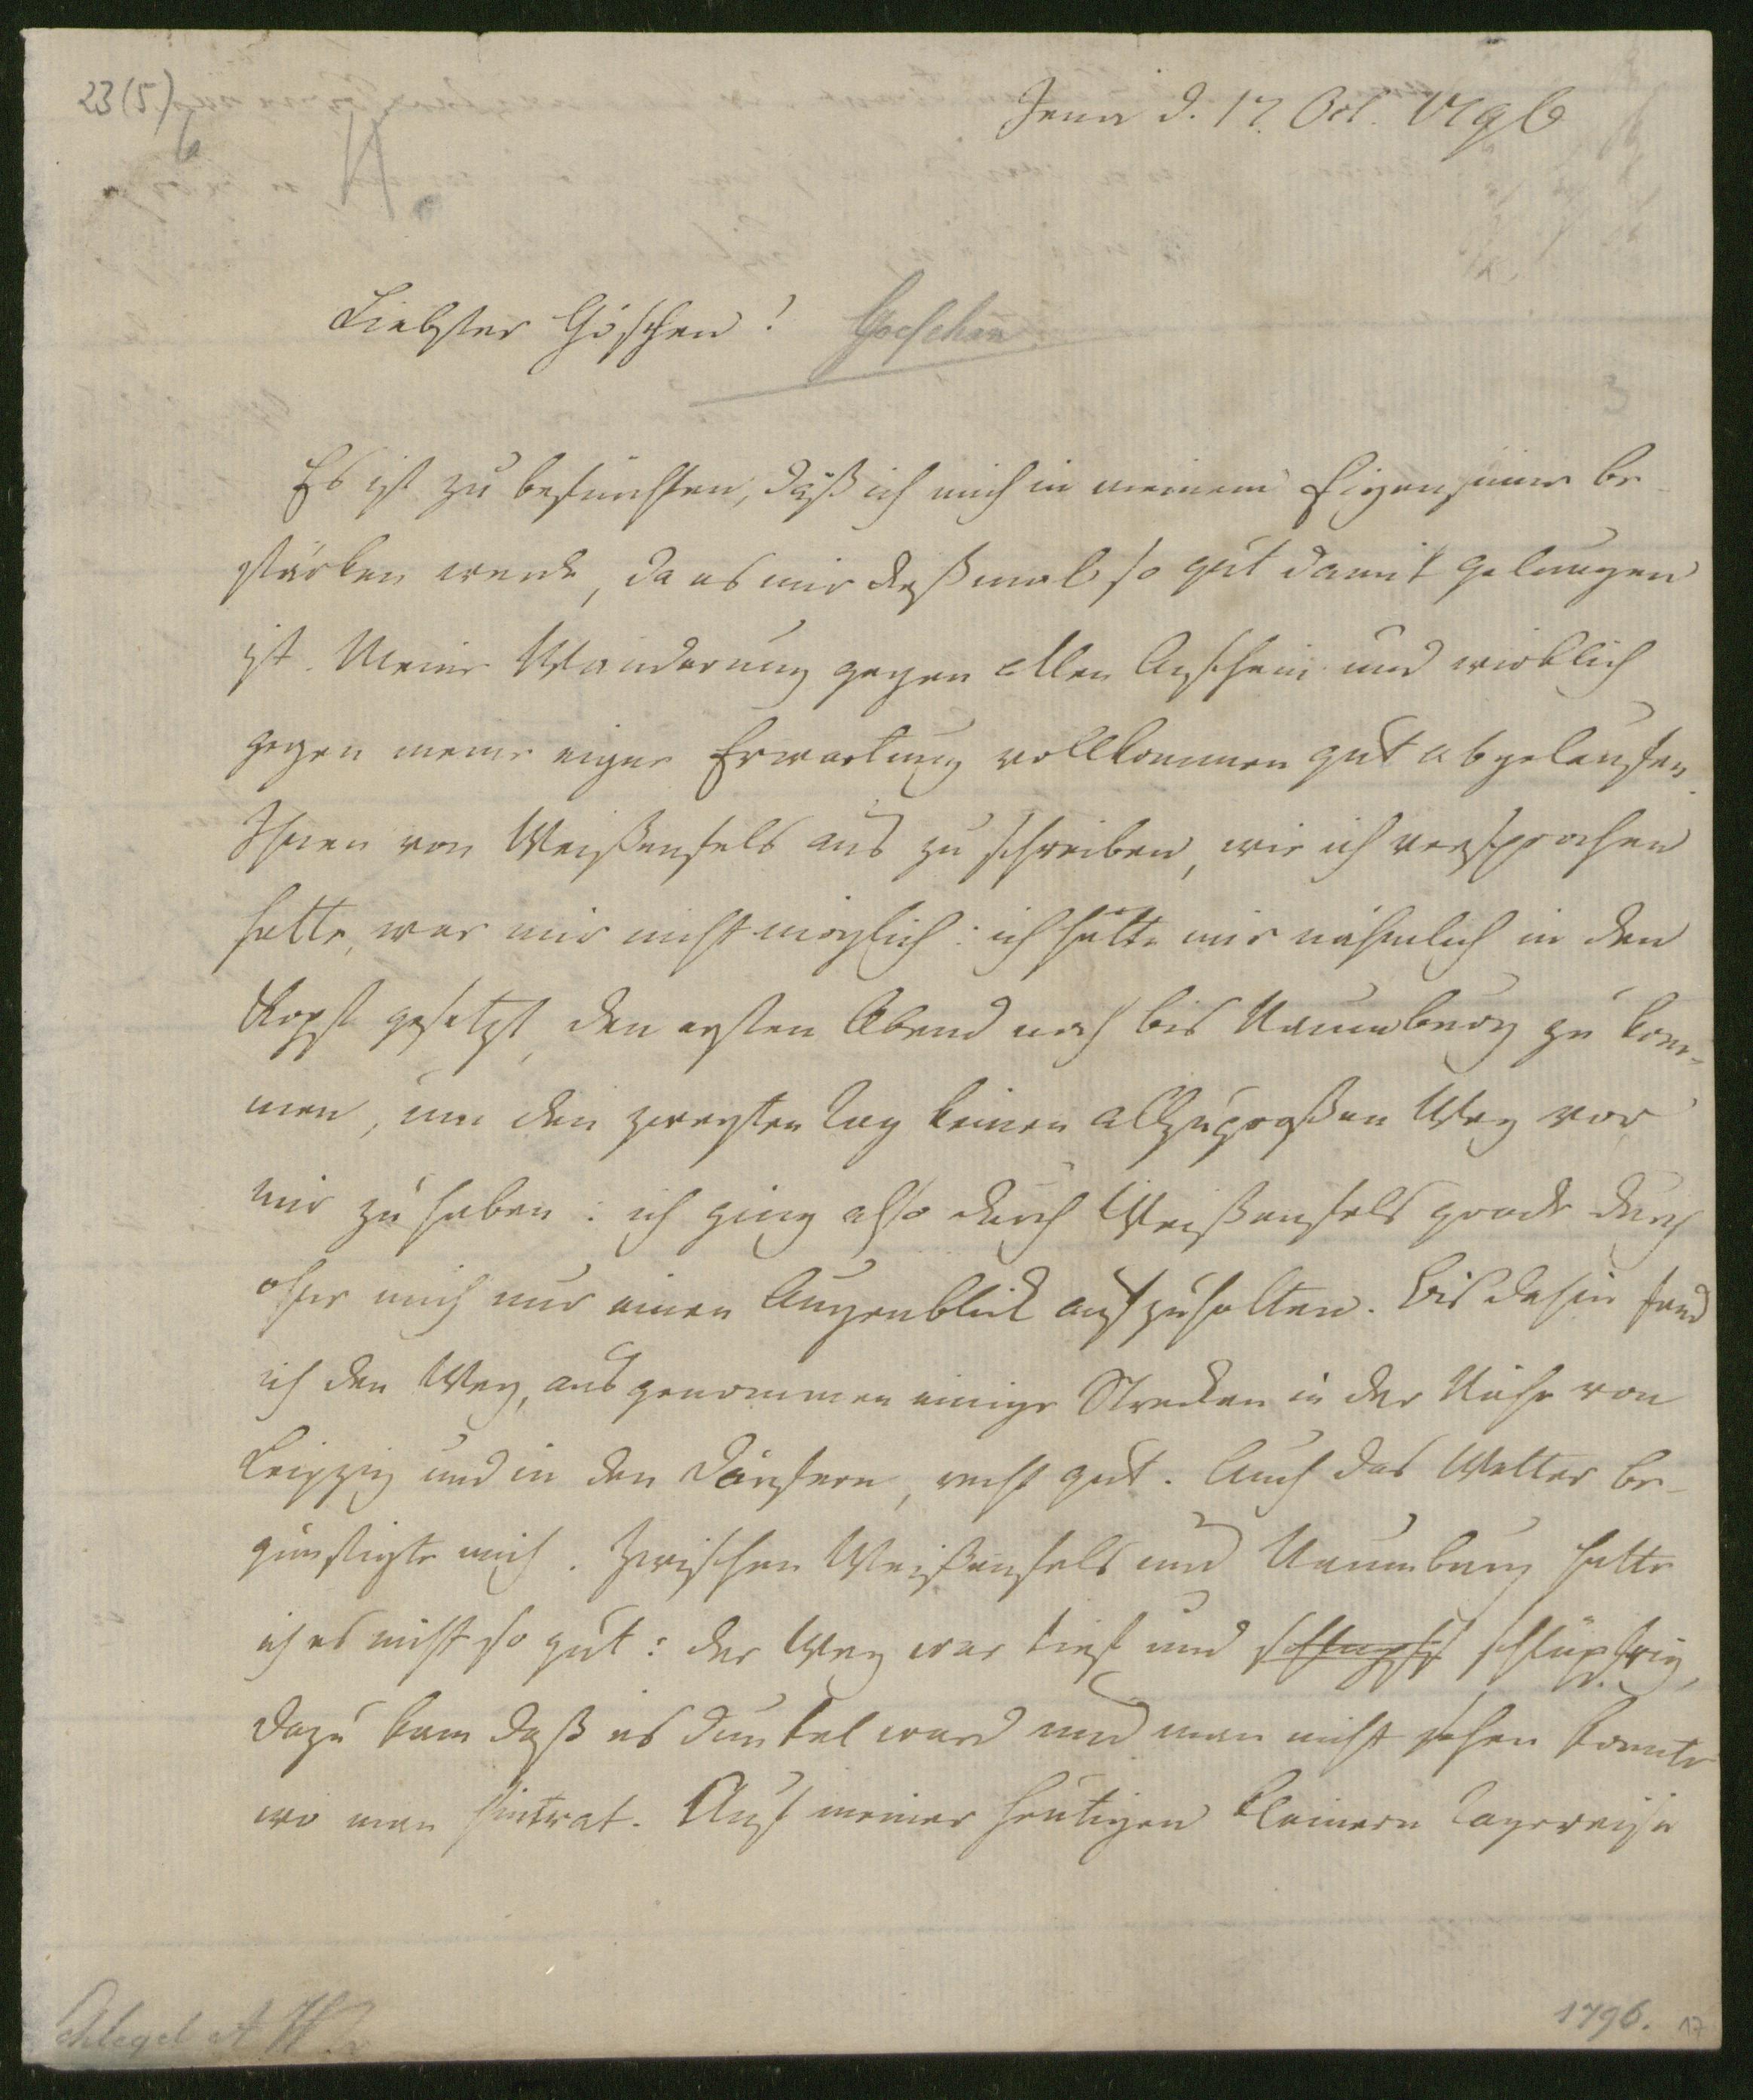 23(5)
6
Jena d. 17. Oct. 1796
Liebster Göschen! Goeschen
Es ist zu befürchten, daß ich mich in meinem Eigensinne be-
stärken werde, da es mir deßmal so gut damit gelungen
ist. Meine Wanderung gegen allen Anschein und wirklich
gegen meine eigne Erwartung vollkommen gut abgelaufen.
Ihnen von Weißenfels aus zu schreiben, wie ich versprochen
hatte, war mir nicht möglich: ich hatte mir nähmlich in den
Kopf gesetzt, den ersten Abend noch bis Naumburg zu kom-
men, um den zweyten Tag keinen allzugroßen Weg vor
mir zu haben: ich ging also durch Weißenfels grade durch
ohne mich nur einen Augenblick aufzuhalten. Bis dahin fand
ich den Weg, ausgenommen einige Strecken in der Nähe von
Leipzig und in den Dörfern, recht gut. Auch das Wetter be-
günstigte mich. Zwischen Weißenfels und Naumburg hatte
ich es nicht so gut: der Weg war tief und schlüpfrig,
dazu kam daß es dunkel ward und man nicht sehen konnte
wo man hintrat. Auf meiner heutigen kleinern Tagereise
Schlegel A W.
1796. 17